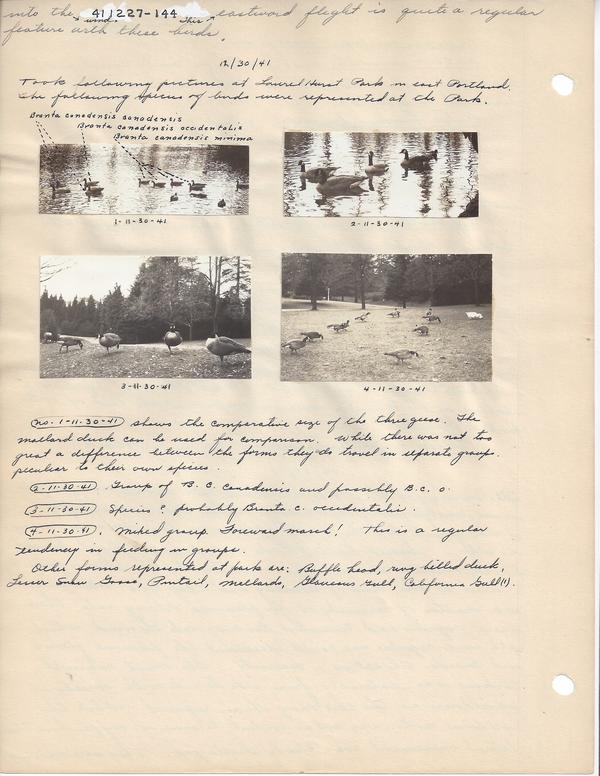 into the wind. This eastward flight is quite a regular
41/227-144
feature with these birds.
12/30/41
Took following pictures at Laurel Hurst Park in east Portland.
The following species of birds were represented at the Park.
Branta canadensis canadensis
Branta canadensis occidentalis
Branta canadensis minima
1-11-30-41
2-11-30-41
3-11-30-41
4-11-30-41
no. 1-11-30-41 shows the comparative size of the three geese. The
mallard duck can be used for comparison. While there was not too
great a difference between the forms they do travel in separate groups
peculiar to their own species.
2-11-30-41 Group of B. C. canadensis and possibly B.C. o.
3-11-30-41 Species? probably Branta c. occidentalis.
4-11-30-41. Mixed group. Foreward march! This is a regular
tendency in feeding in groups.
Other forms represented at park are: Buffle head, ring billed duck,
Lesser Snow Goose, Pintail, mallards, Glaucous Gull, California Gull(1).